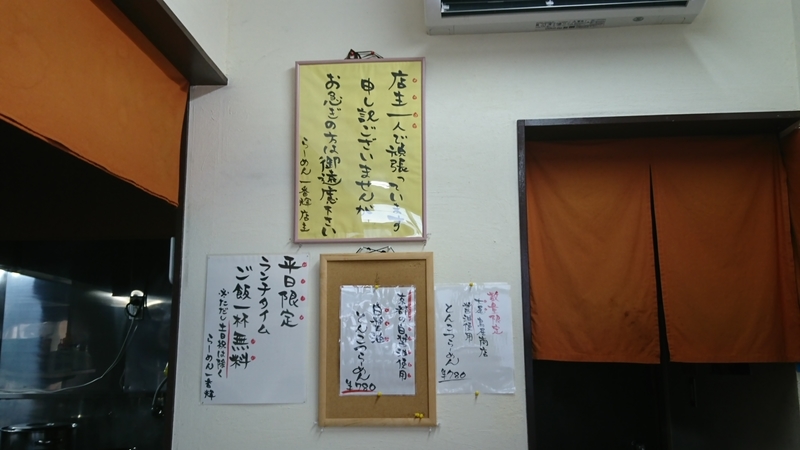 店主一人で頑張っています
申し訳ございませんが
お急ぎの方は御遠慮下さい
らーめん一番輝店主
平日限定
ランチタイム
ご飯一杯無料
※ただし土日祝は除く
らーめん一番輝
京都の白醤油使用
白醤油
とんこつらーめん
¥780
数量限定
醤油使用
とんこつらーめん
¥780